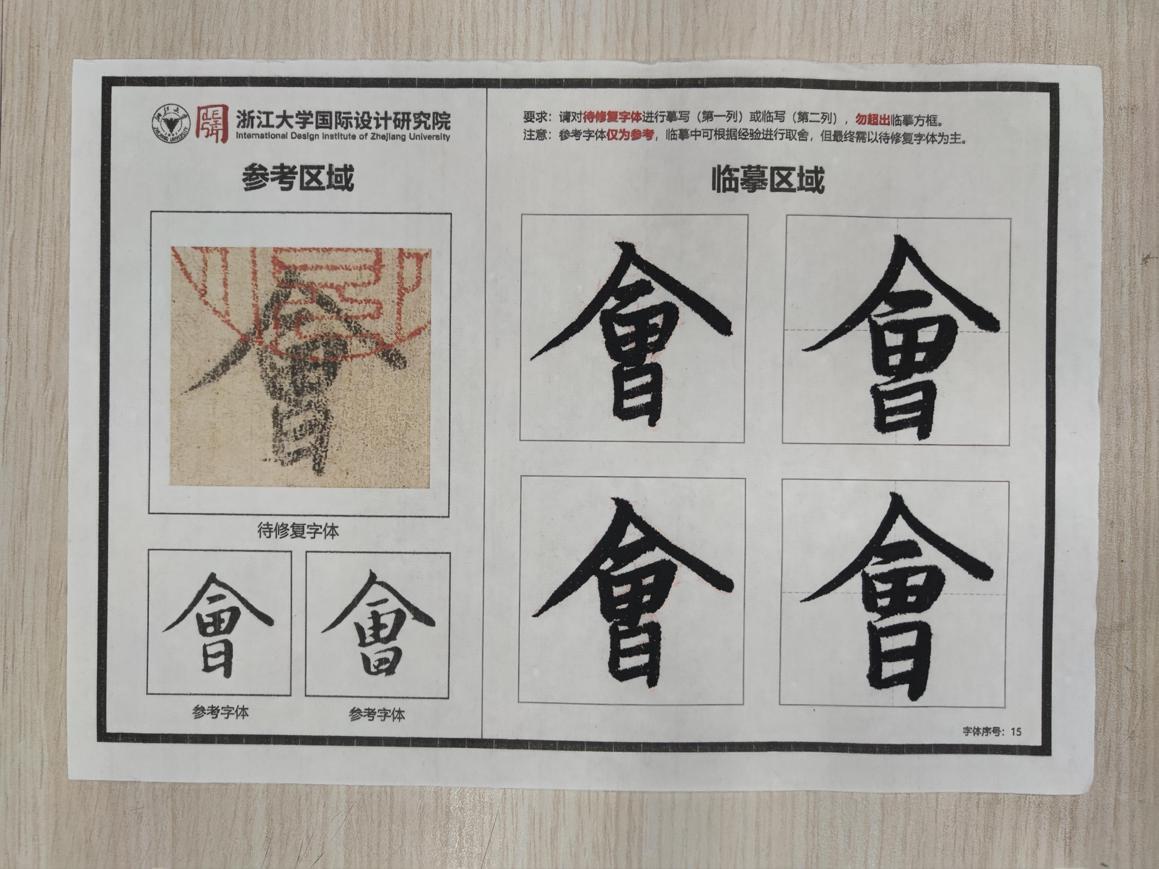 浙江大学国际设计研究院
International Design Institute of Zhejiang University
参考区域
會
待修复字体
會 會
参考字体 参考字体
要求：请对待修复字体进行摹写（第一列）或临写（第二列），勿超出临摹方框。
注意：参考字体仅为参考，临摹中可根据经验进行取舍，但最终需以待修复字体为主。
临摹区域
會 會
會 會
字体序号：15